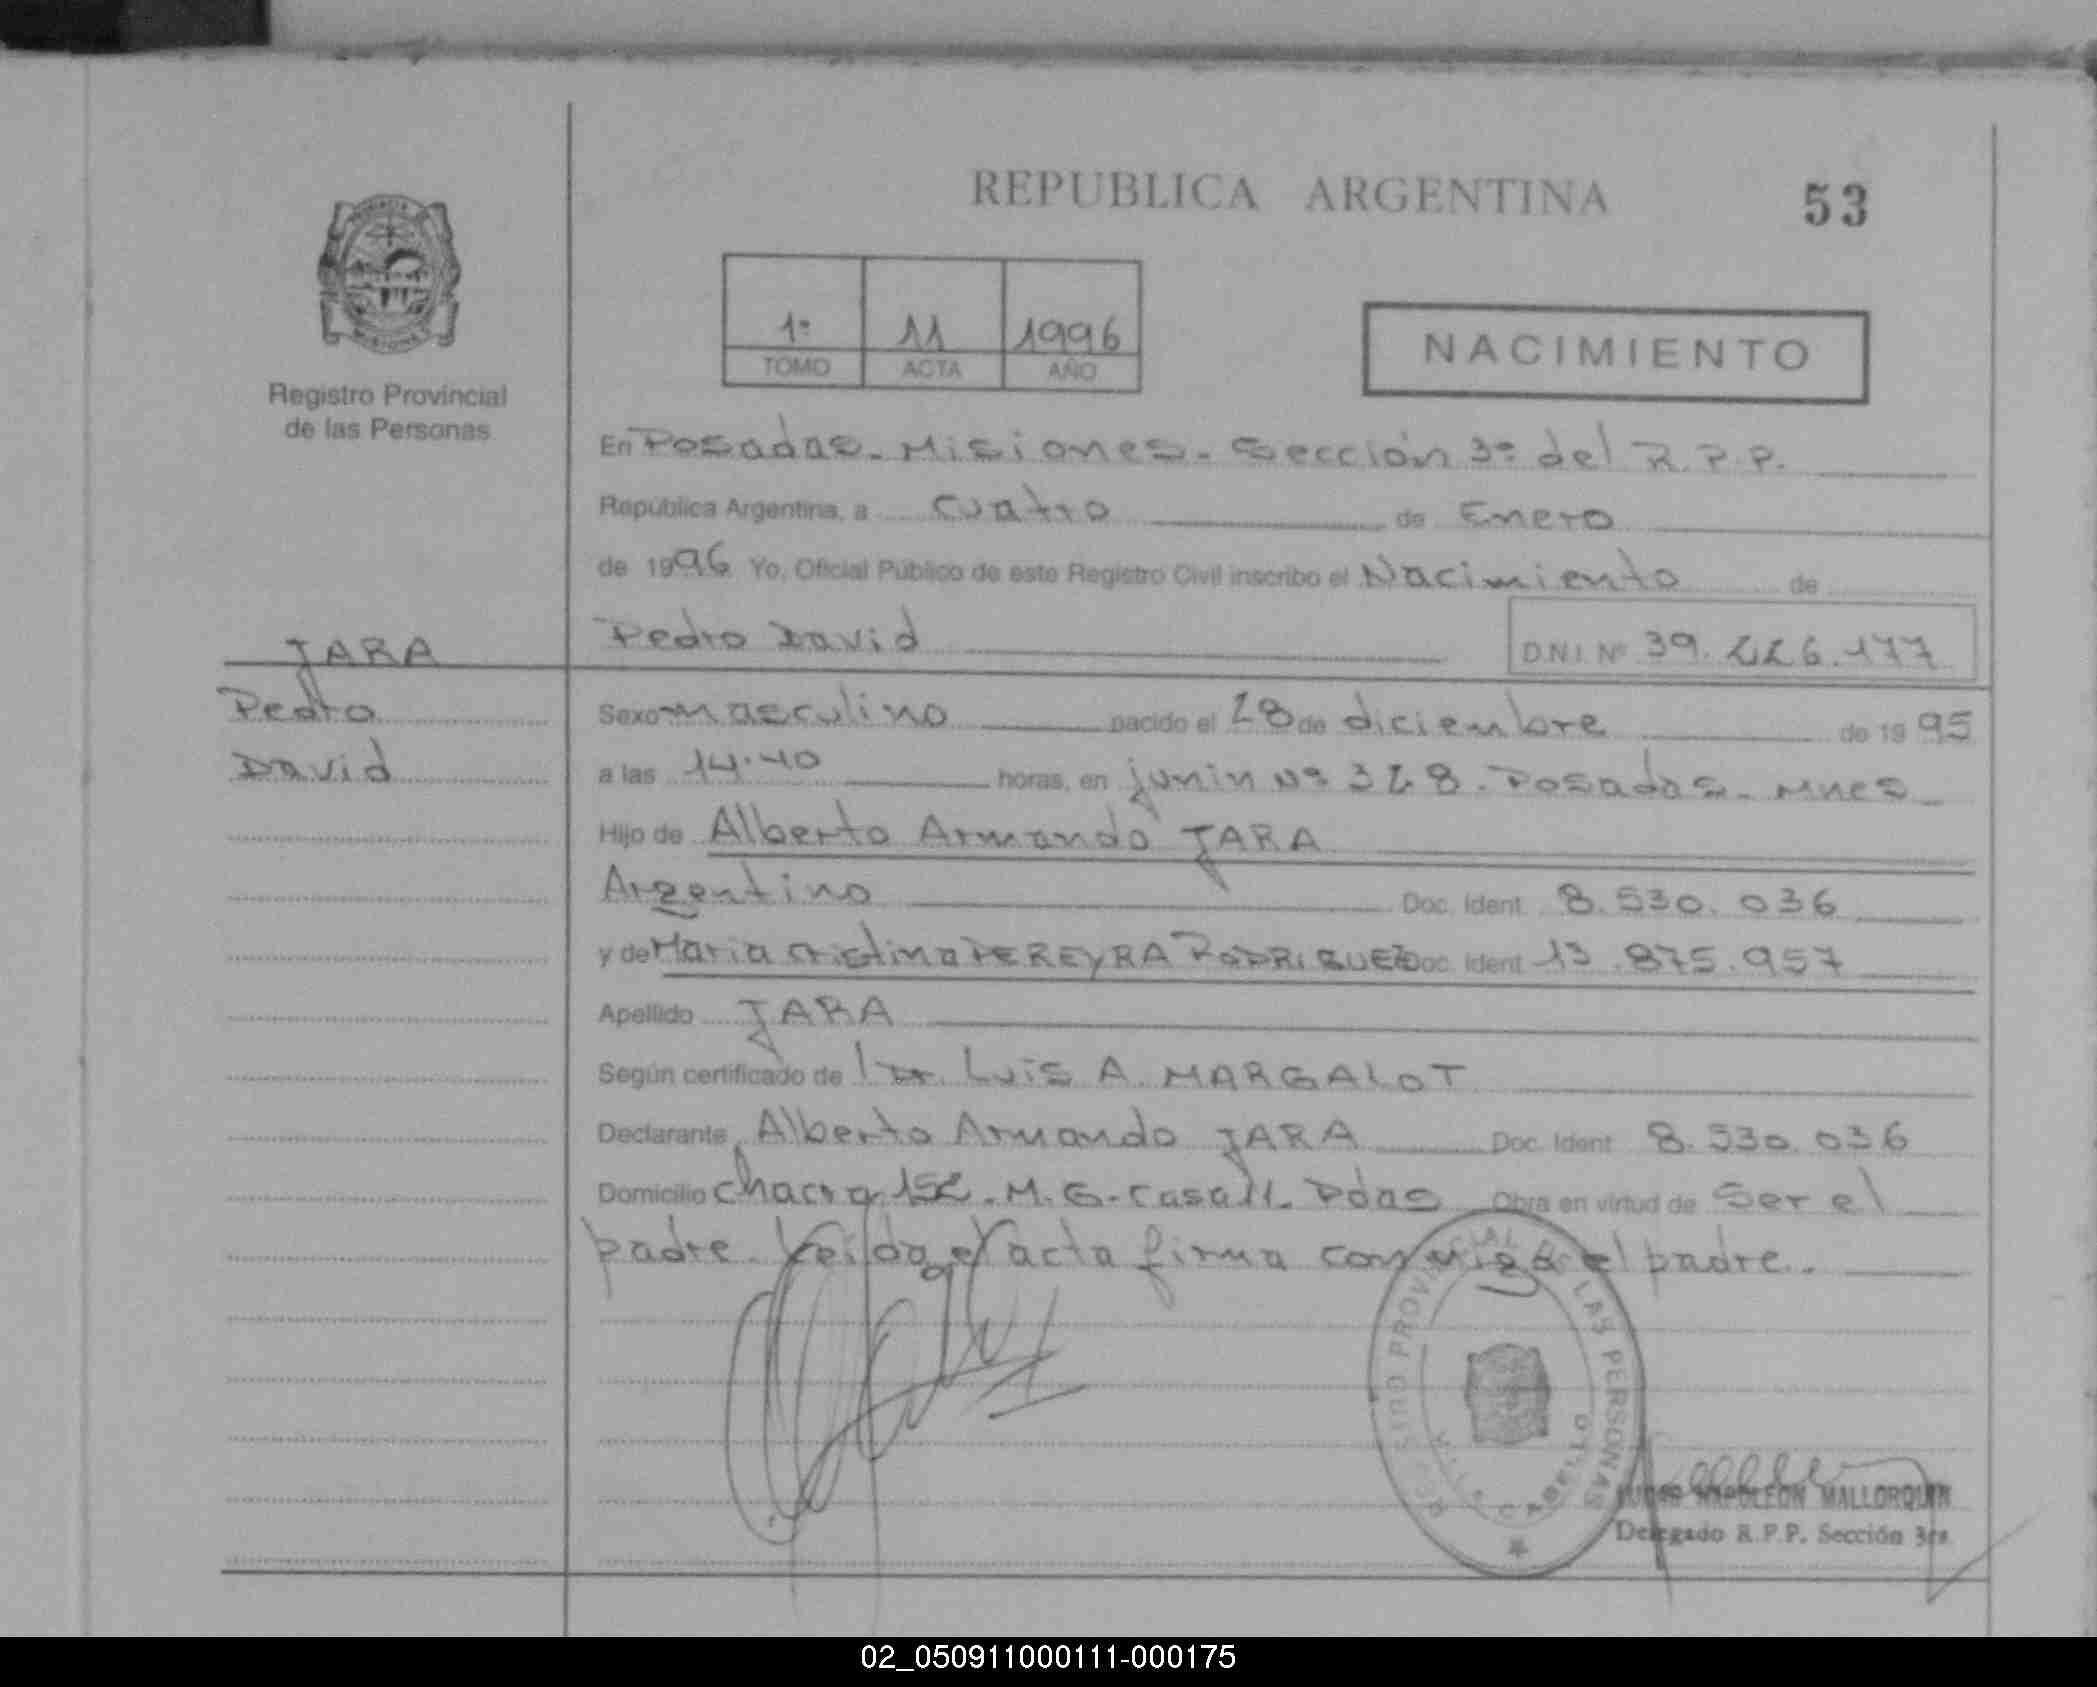 REPUBLICA ARGENTINA
53
1º 11 1996
TOMO ACTA AÑO
NACIMIENTO
PROVINCIA DE
MISIONES
Registro Provincial
de las Personas
En Posadas - Misiones - Sección 3º del R.P.P.
República Argentina, a cuatro de Enero
de 1996 Yo, Oficial Público de este Registro Civil inscribo el Nacimiento de
Pedro David D.N.I. Nº 39.226.177
JARA
Pedro
David
Sexo masculino nacido el 28 de diciembre de 1995
a las 14.40 horas, en junin Nº 328. Posadas - Mnes
Hijo de Alberto Armando JARA
Argentino Doc. Ident. 8.530.036
y de Maria Cristina PEREYRA RODRIGUEZ Doc. Ident. 13.875.957
Apellido JARA
Según certificado de Dr. Luis A. MARGALOT
Declarante Alberto Armando JARA Doc. Ident. 8.530.036
Domicilio chacra 152 - M. G. - casa 11 - Pdas Obra en virtud de Ser el
padre. Leida el acta firma conmigo el padre.
REGISTRO PROVINCIAL DE LAS PERSONAS
VILLA CABELLO
NAPOLEON MALLORQUIN
Delegado R.P.P. Sección 3ra.
02_050911000111-000175